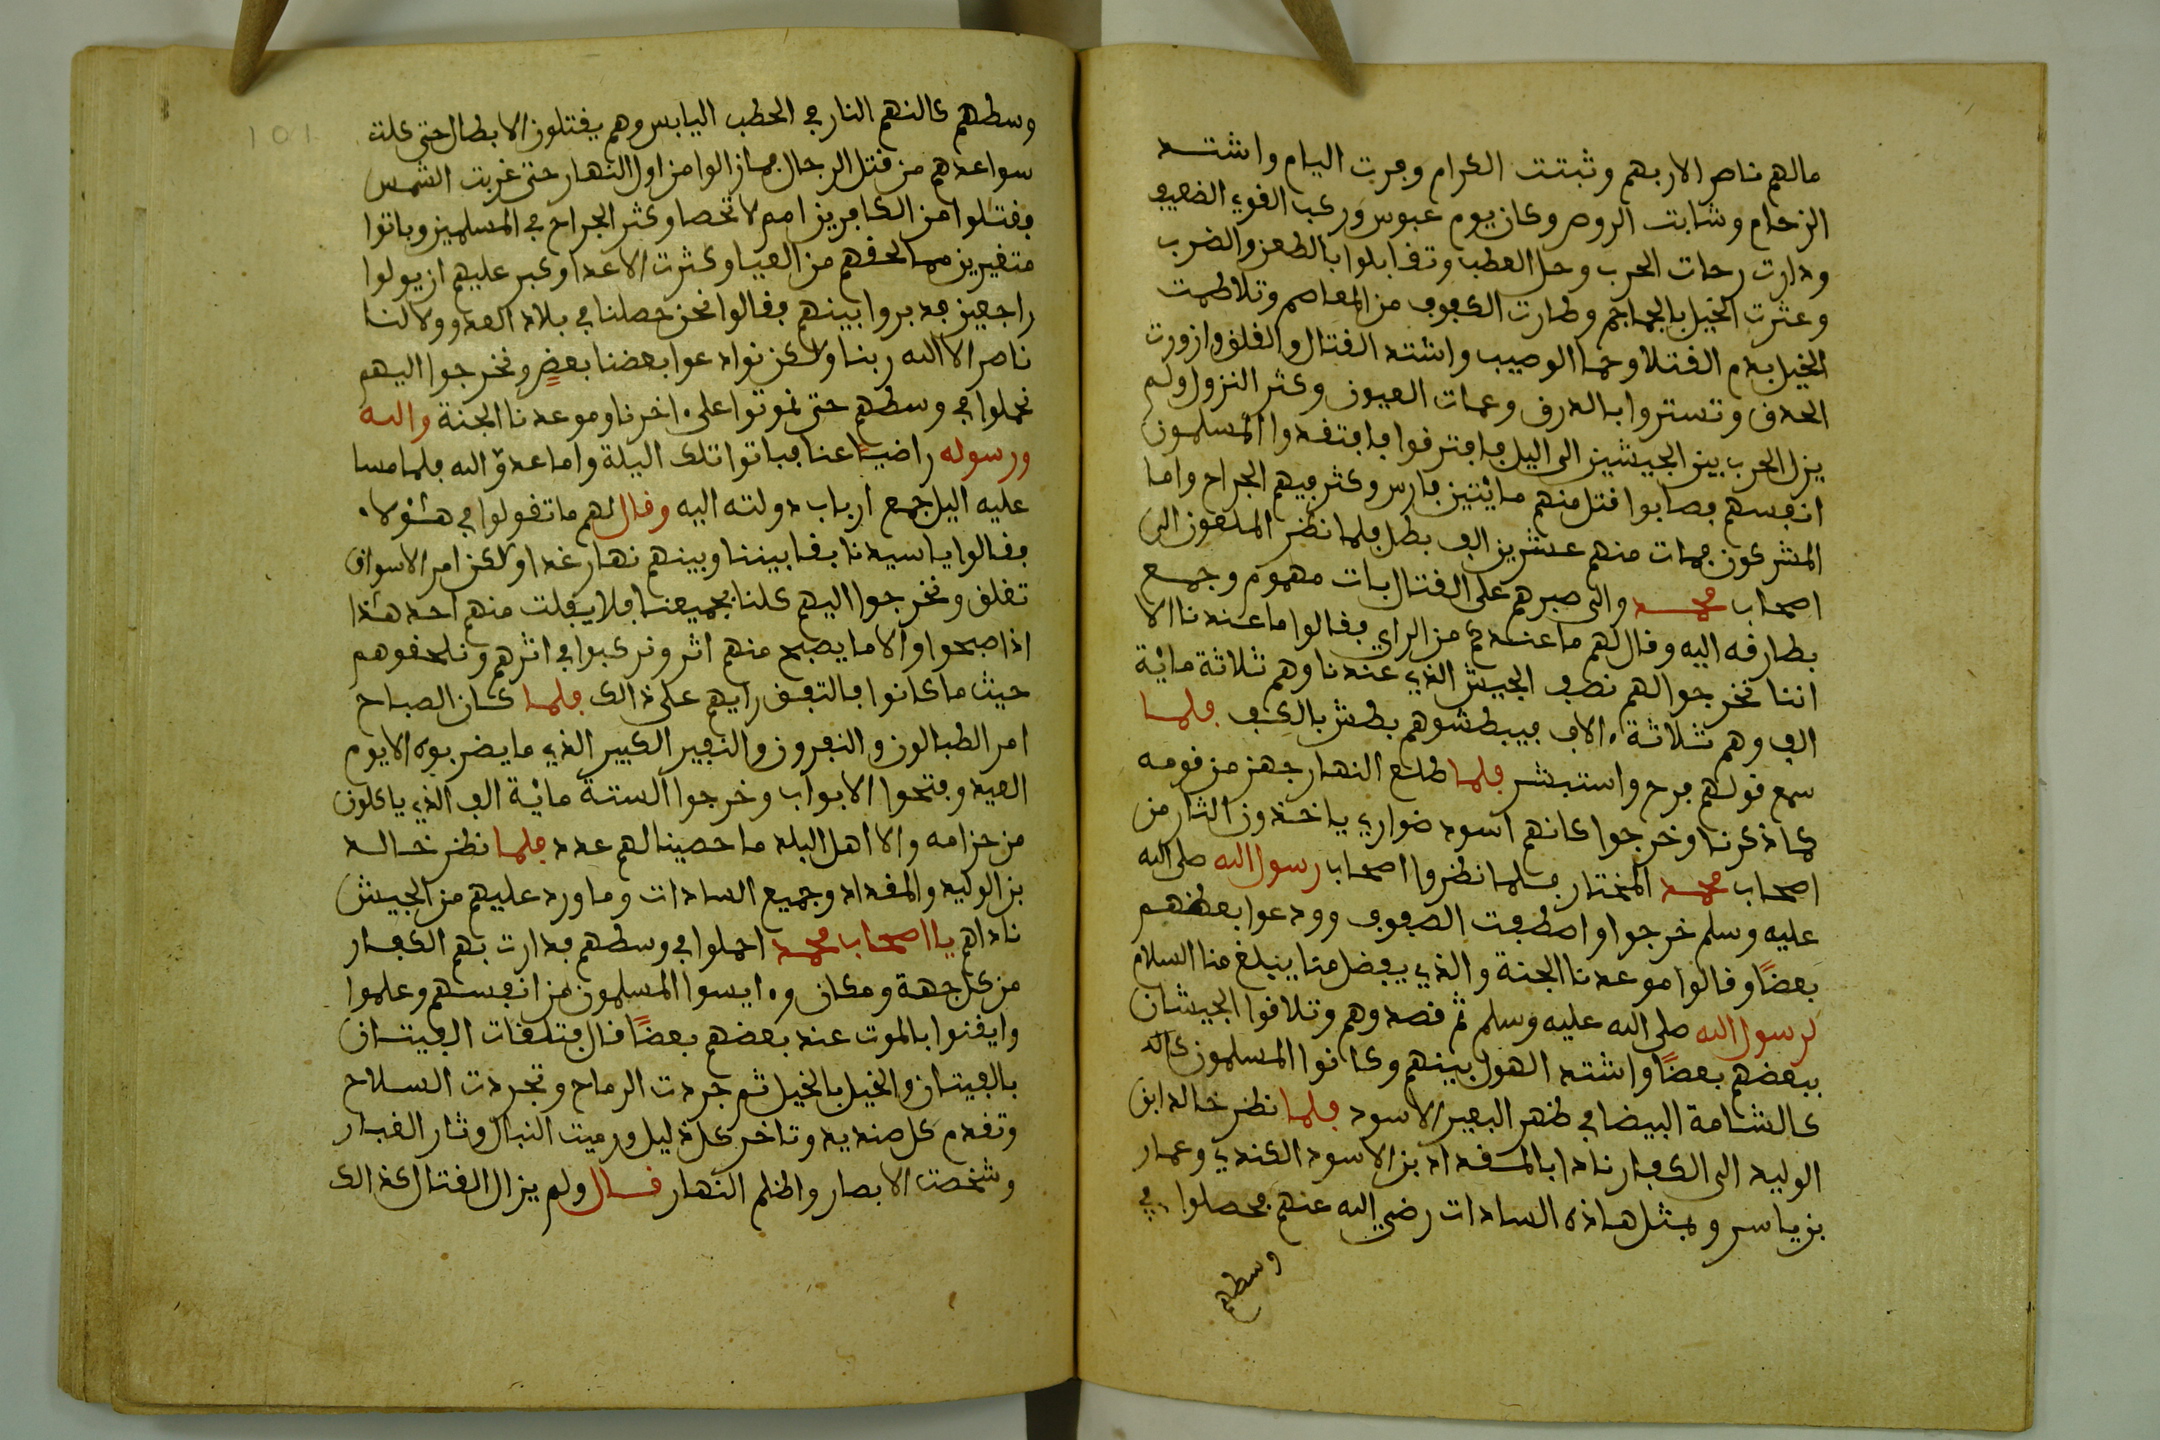 مالهم ناصر الا ربهم وثبتت الكرام وجرت اليام واشتد
الزحام وشابت الروس وكان يوم عبوس وركب القوي الضعيف
ودارت رحات الحرب وحل العطب وتقابلوا بالطعن والضرب
وعثرت الخيل بالجماجم وطارت الكفوف من المعاصم وتلاطمت
الخيل بدم القتلا وحما الوصيب واشتد القتال والقلق وازورت
الحدق وتستروا بالدرق وعمات العيون وكثر النزول ولم
يزل الحرب بين الجيشين الى اليل فافترقوا فافتقدوا المسلمون
انفسهم فصابوا قتل منهم مائتين فارس وكثر فيهم الجراح واما
المشركون فمات منهم عشرين الف بطل فلما نظر الملعون الى
اصحاب محمد والى صبرهم على القتال بات مهموم وجمع
بطارقه اليه وقال لهم ما عندكم من الراي فقالوا ما عندنا الا
اننا نخرجوا لهم نصف الجيش الذي عندنا وهم ثلاثة مائة
الف وهم ثلاثة ءالاف فيبطشوهم بطش بالكف فلما
سمع قولهم فرح واستبشر فلما طلع النهار جهز من قومه
كما ذكرنا وخرجوا كانهم اسود ضواري ياخذون الثار من
اصحاب محمد المختار فلما نظروا اصحاب رسول الله صلى الله
عليه وسلم خرجوا واصطفت الصفوف وودعوا بعضهم
بعضًا وقالوا موعدنا الجنة والذي يفضل منا يبلغ منا السلام
لرسول الله صلى الله عليه وسلم ثم قصدوهم وتلاقوا الجيشان
ببعضهم بعضًا واشتد الهول بينهم وكانوا المسلمون
كالشامة البيضا في ظهر البعير الاسود فلما نظر خالد ابن
الوليد الى الكفار نادا بالمقداد بن الاسود الكندي وعمار
بن ياسر وبمثل هاذه السادات رضي الله عنهم فحصلوا في
وسطهم
وسطهم كالنهم النار في الحطب اليابس وهم يقتلون الابطال حتى كلت
سواعدهم من قتل الرجال فمازالوا من اول النهار حتى غربت الشمس
فقتلوا من الكافرين امم لا تحصا وكثر الجراح في المسلمين وباتوا
متغيرين مما لحقهم من العيا وكثرت الاعدا وكبر عليهم ان يولوا
راجعين فدبروا بينهم فقالوا نحن حصلنا في بلاد العدو ولا لنا
ناصر الا الله ربنا ولاكن نوادعوا بعضنا بعضٍ ونخرجوا اليهم
نحملوا في وسطهم حتى نموتوا على ءاخرنا وموعدنا الجنة والله
ورسوله راضيا عنا فباتوا تلك اليلة واما عدوّ الله فلما مسا
عليه اليل جمع ارباب دولته اليه وقال لهم ما تقولوا في هـٰؤلاء
فقالوا يا سيدنا بقا بيننا وبينهم نهار غدا ولاكن امر الاسواق
تغلق ونخرجوا اليهم كلنا بجميعنا فلا يفلت منهم احد هـٰذا
اذا صبحوا والا ما يصبح منهم اثر ونركبوا في اثرهم ونلحقوهم
حيث ما كانوا فالتفق رايهم على ذالك فلما كان الصباح
امر الطبالون والنفرون والنفير الكبير الذي ما يضربوه الا يوم
العيد وفتحوا الابواب وخرجوا الستة مائة الف الذي ياكلون
من حزامه والا اهل البلد ما حصينا لهم عدد فلما نظر خالد
بن الوليد والمقداد وجميع السادات وما ورد عليهم من الجيش
ناداهم يا اصحاب محمد احملوا في وسطهم فدارت بهم الكفار
من كل جهة ومكان وءايسوا المسلمون من انفسهم وعلموا
وايقنوا بالموت عند بعضهم بعضًا قال فتلقات الفيتان
بالفيتان والخيل بالخيل ثم جردت الرماح وتجردت السلاح
وتقدم كل صنديد وتاخر كل ذليل ورميت النبال وثار الغبار
وشخصت الابصار واظلم النهار قال ولم يزال القتال كذالك